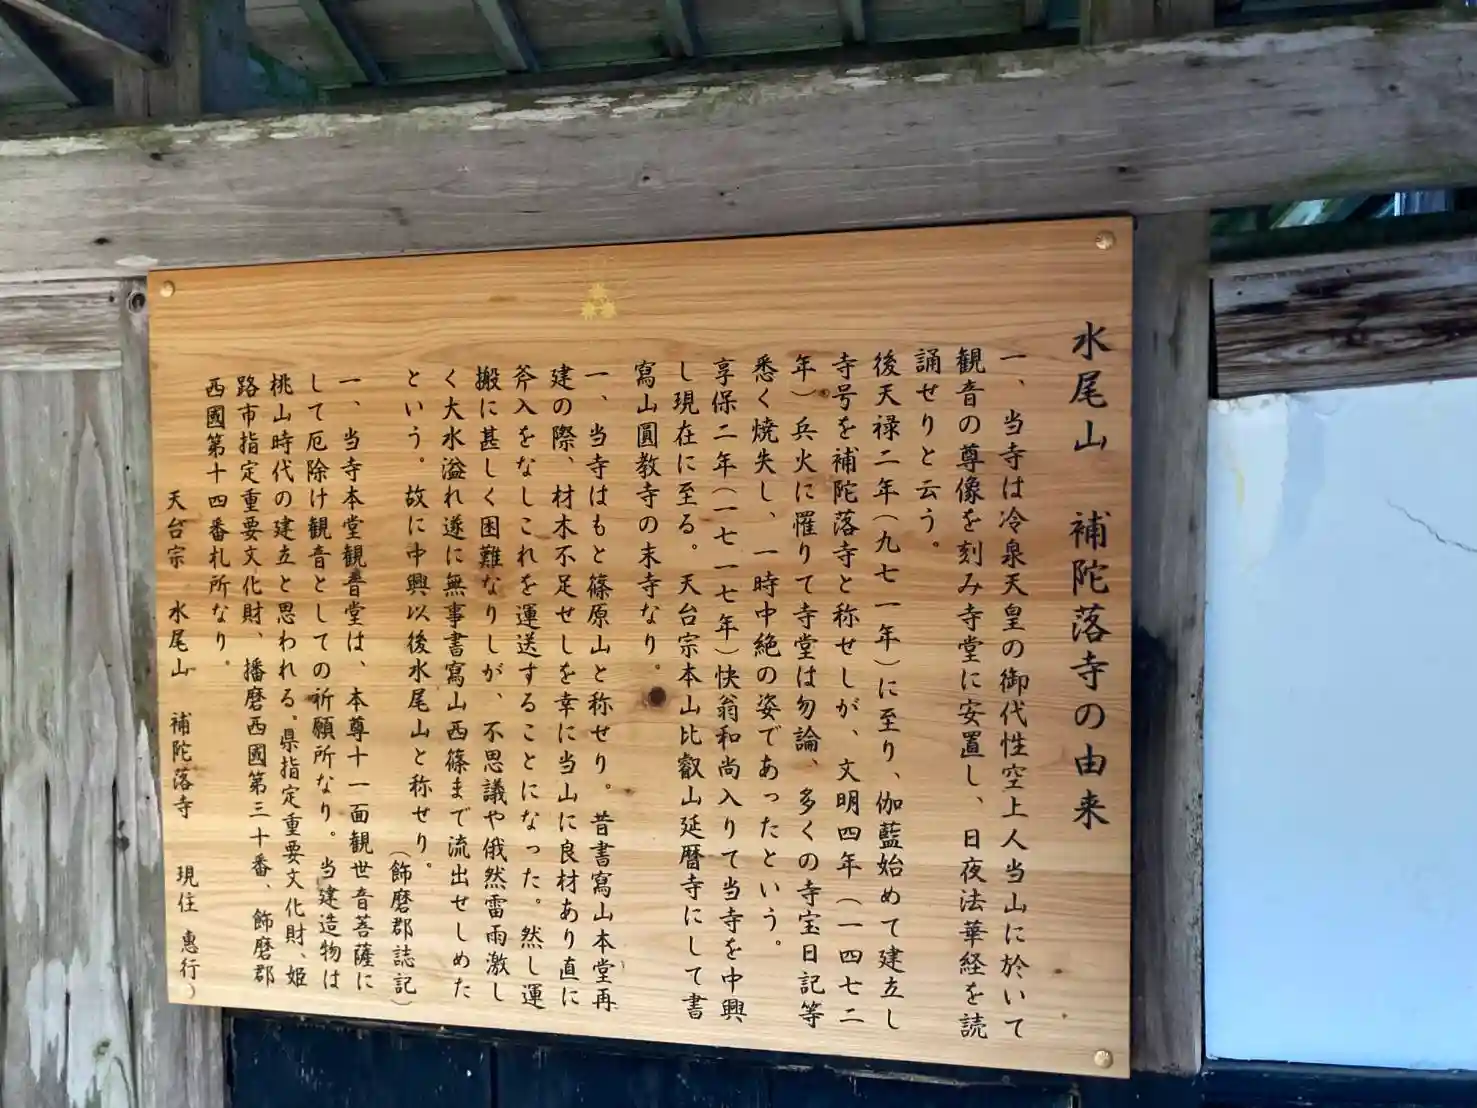 水尾山 補陀落寺の由来
一、当寺は冷泉天皇の御代性空上人当山に於いて
観音の尊像を刻み寺堂に安置し、日夜法華経を読
誦せりと云う。
後天禄二年(九七一年)に至り、伽藍始めて建立し
寺号を補陀落寺と称せしが、文明四年(一四七二
年)兵火に罹りて寺堂は勿論、多くの寺宝日記等
悉く焼失し、一時中絶の姿であったという。
享保二年(一七一七年)快翁和尚入りて当寺を中興
し現在に至る。天台宗本山比叡山延暦寺にして書
寫山圓教寺の末寺なり。
一、当寺はもと篠原山と称せり。昔書寫山本堂再
建の際、材木不足せしを幸に当山に良材あり直に
斧入をなしこれを運送することになった。然し運
搬に甚しく困難なりしが、不思議や俄然雷雨激し
く大水溢れ遂に無事書寫山西篠まで流出せしめた
という。故に中興以後水尾山と称せり。
(飾磨郡誌記)
一、当寺本堂観音堂は、本尊十一面観世音菩薩に
して厄除け観音としての祈願所なり。当建造物は
桃山時代の建立と思われる。県指定重要文化財、姫
路市指定重要文化財、播磨西國第三十番、飾磨郡
西國第十四番札所なり。
天台宗 水尾山 補陀落寺 現住 惠行)